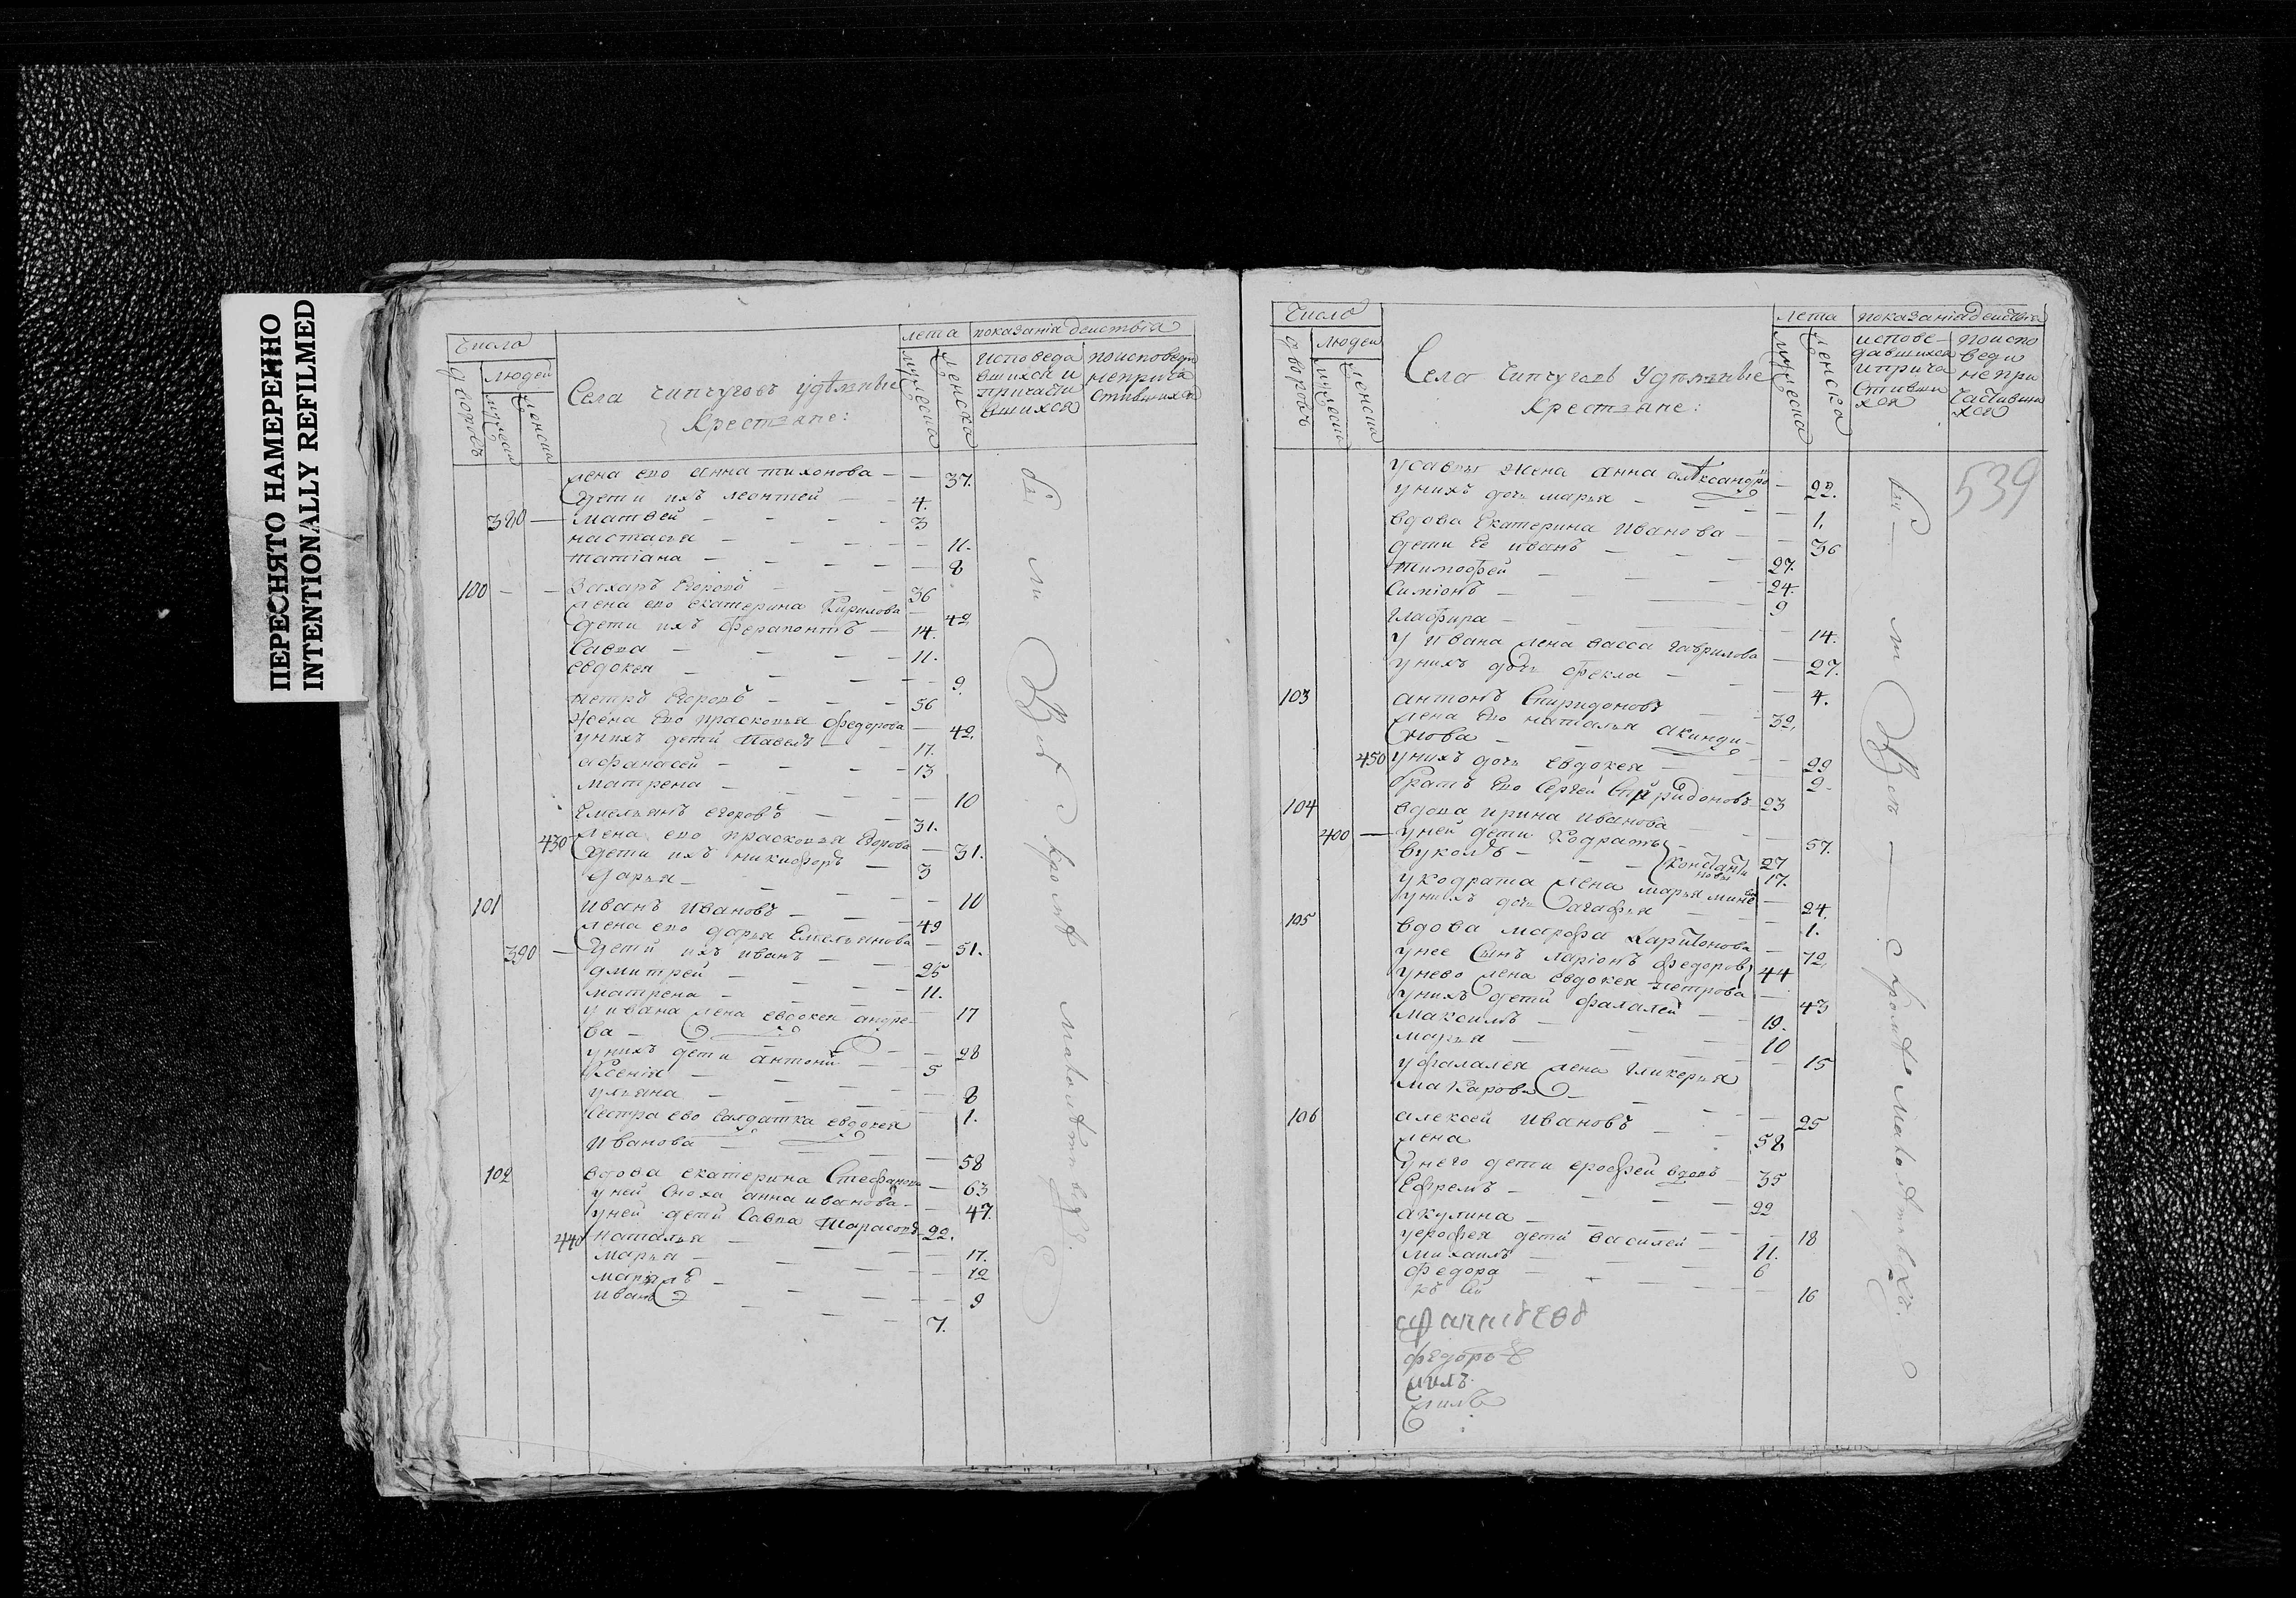 ПЕРЕСНЯТО НАМЕРЕННО
INTENTIONALLY REFILMED
Числа
дворовъ
людей
мужеска
женска
Села чипчуговъ удѣлныя
Крестяне:
лета
мужеска
женска
показанія действія
исповеда
вшихся и
причасти
вшихся
поисповеди
неприча
стившихся
жена ево анна тихонова — — 37.
дети ихъ леонтей — 4.
380 — матвей — 3
настасья — 11.
татіана — 8
100 — Захаръ Егоровъ — 36
жена ево екатерина Кирилова — 42
дети ихъ ферапонтъ — 14.
Савва — 11.
евдокея — 9.
петръ Егоровъ — 56
жена ево прасковья федорова — 42.
унихъ дети Павелъ — 17.
афанасей — 13
матрена — 10
Емельянъ егоровъ — 31.
430 жена ево прасковья Егорова — 31.
дети ихъ никифоръ — 3
дарья — 10
101 иванъ ивановъ — 49
жена ево дарья Емельянова — 51.
390 — дети ихъ иванъ — 25
дмитрей — 11.
матрена — 17
у ивана жена евдокея андре-
ва — 28
унихъ дети антоній — 5
Ксенія — 8
ульяна — 1.
Сестра ево Салдатка евдокея
Иванова — 58
102 вдова екатерина Стефанова — 63
уней сноха анна иванова — 47.
уней дети Савва Тарасовъ 22.
440 наталья — 17.
марья — 12
марья — 9
иванъ — 7.
Всѣ кромѣ малолѣтныхъ.
Число
дворовъ
людей
мужеска
женска
Села чипчуговъ Удѣлныя
Крестяне:
лета
мужеска
женска
показанія действія
испове-
давшихся
иприча
стивши
хся
поиспо
веди
непри
частивши
хся
539
усаввы жена анна александро — 22.
унихъ дочь марья — 1.
вдова Екатерина Иванова — 36
дети Ее иванъ — 27.
тимофей — 24.
Симіонъ — 9
глафира — 14.
у Ивана жена васса гаврилова — 27.
унихъ дочь фекла — 4.
103 антонъ Спиридоновъ — 32.
жена Ево наталья акинди-
нова — 29
450 унихъ дочь евдокея — 2.
братъ Ево Сергей Спиридоновъ 23
104 вдова ирина иванова — 57.
400 — уней дети Кодратъ — 27
вуколъ — Констан
тиновы 17.
укодрата жена марья минее — 24.
унихъ дочь агафья — 1.
105 вдова марфа Харитонова — 72.
унее Сынъ ларіонъ федоровъ 44
унево жена евдокея петрова — 43
унихъ дети фалалей — 19.
максимъ — 10
марья — 15
уфалалея жена гликерья
макарова — 25
106 алексей ивановъ — 58
жена
унего дети ерофей вдовъ 35
Ефремъ — 22
акулина — 18
уерофея дети василей — 11.
михаилъ — 6
федора — 16
Всѣ — кромѣ малолѣтныхъ.
федоръ